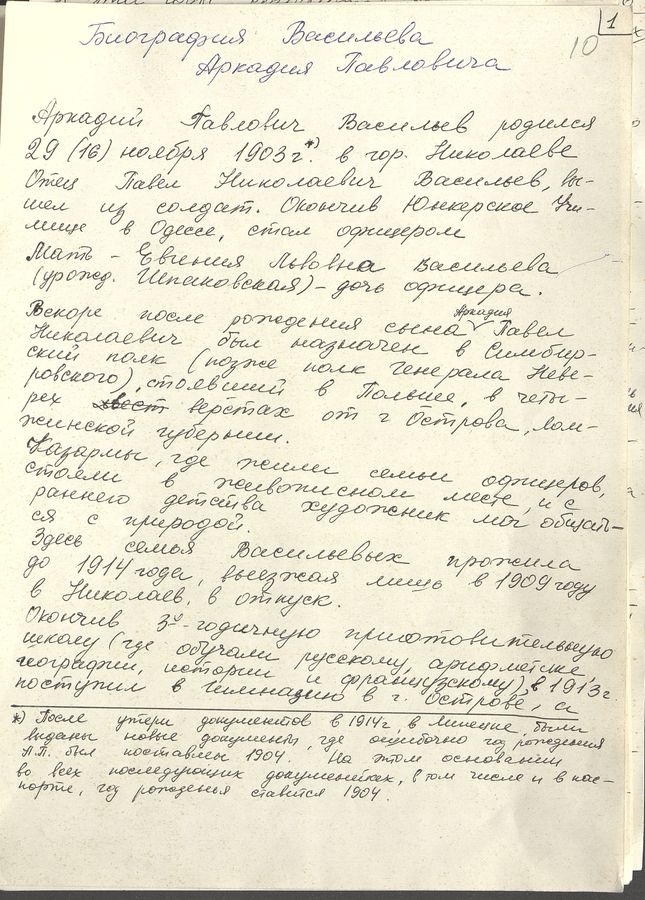 1
10
Биография Васильева
Аркадия Павловича
Аркадий Павлович Васильев родился
29 (16) ноября 1903 г.*) в гор. Николаеве
Отец Павел Николаевич Васильев, вы-
шел из солдат. Окончив Юнкерское Учи-
лище в Одессе, стал офицером
Мать - Евгения Львовна Васильева
(урожд. Шпаковская) - дочь офицера.
Вскоре после рождения сына Аркадия Павел
Николаевич был назначен в Симбир-
ский полк (позже полк генерала Неве-
ровского), стоявший в Польше, в четы-
рех верстах от г Острова, Лом-
жинской губернии.
Казармы, где жили семьи офицеров,
стояли в живописном месте, и с
раннего детства художник мог общать-
ся с природой.
Здесь семья Васильевых прожила
до 1914 года, выезжая лишь в 1909 году
в Николаев, в отпуск.
Окончив 3х-годичную приготовительную
школу (где обучали русскому, арифметике,
географии, истории и французскому), в 1913 г
поступил в гимназию в г. Острове, а
*) После утери документов в 1914 г, в Минске, были
выданы новые документы, где ошибочно год рождения
А.П. был поставлен 1904. На этом основании
во всех последующих документах, в том числе и в пас-
порте, год рожденья ставится 1904.